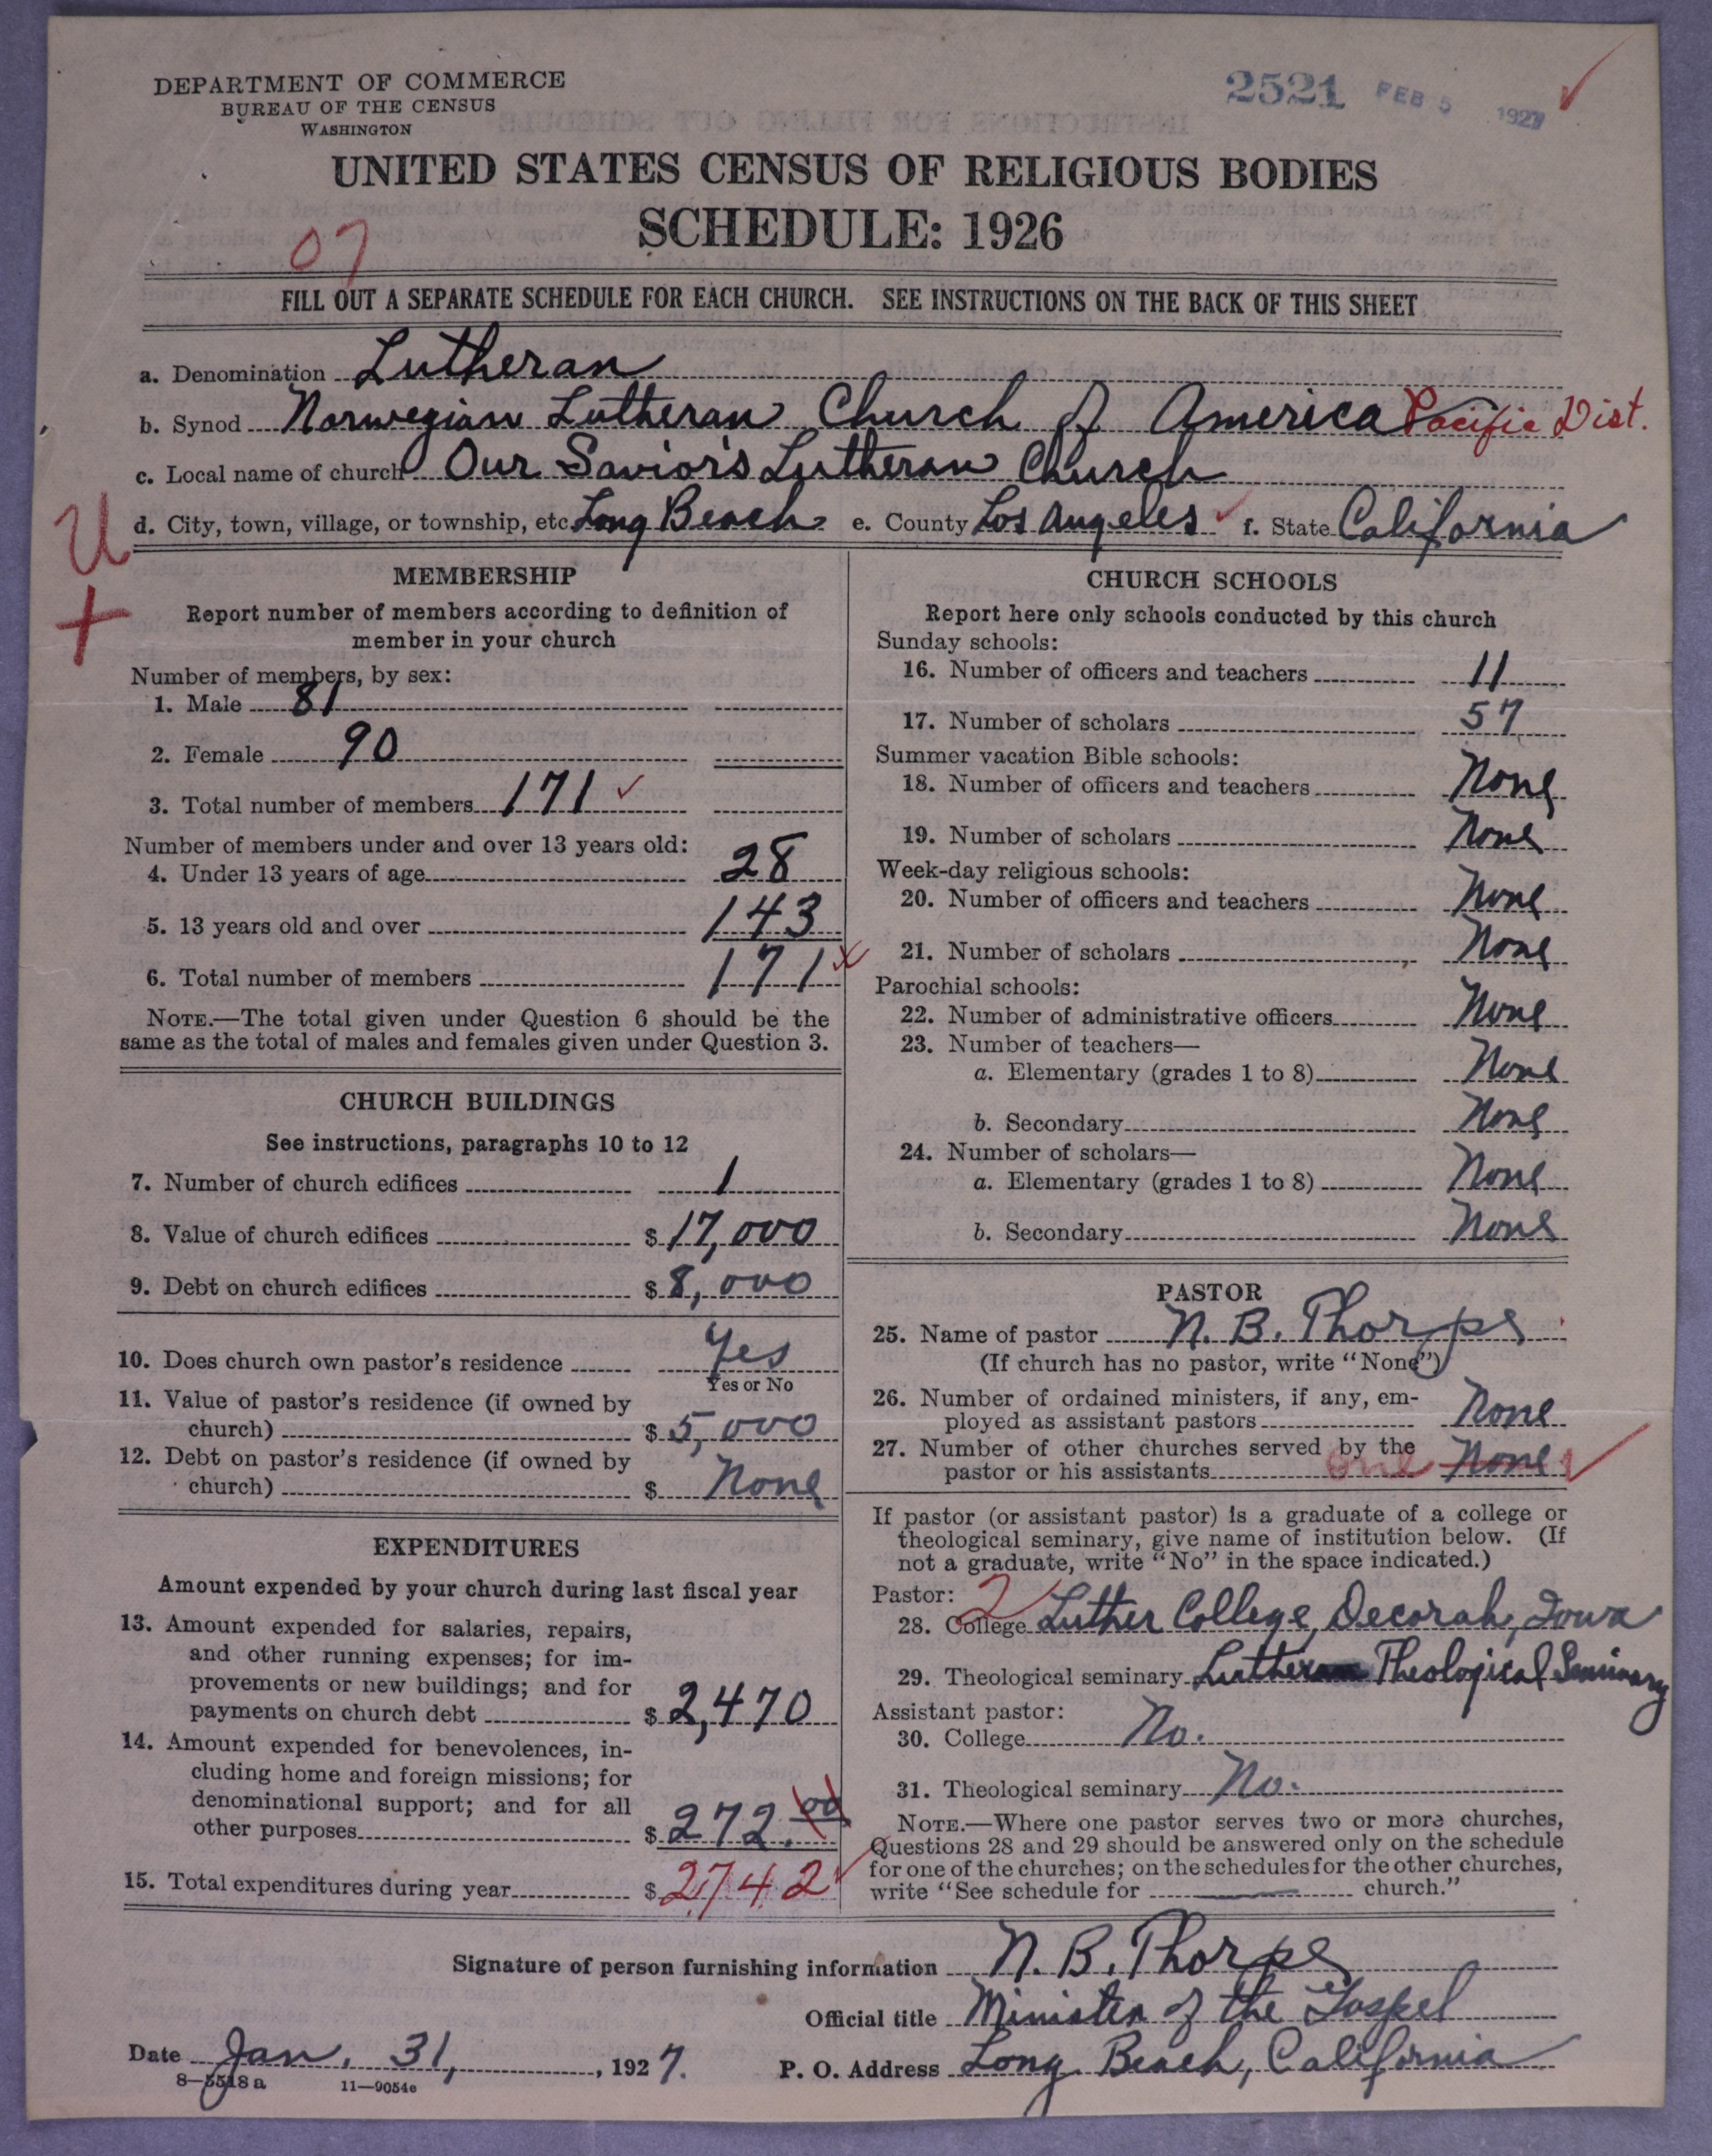 DEPARTMENT OF COMMERCE
BUREAU OF THE CENSUS
WASHINGTON
2521 FEB 5 1927
UNITED STATES CENSUS OF RELIGIOUS BODIES
SCHEDULE: 1926
07
FILL OUT A SEPARATE SCHEDULE FOR EACH CHURCH. SEE INSTRUCTIONS ON THE BACK OF THIS SHEET
a. Denomination Lutheran
b. Synod Norwegian Lutheran Church of America Pacific Dist.
c. Local name of church Our Savior's Lutheran Church
d. City, town, village, or township, etc. Long Beach e. County Los Angeles f. State California
U
+
MEMBERSHIP
Report number of members according to definition of
member in your church
Number of members, by sex:
1. Male 81
2. Female 90
3. Total number of members 171
Number of members under and over 13 years old:
4. Under 13 years of age 28
5. 13 years old and over 143
6. Total number of members 171
NOTE.—The total given under Question 6 should be the
same as the total of males and females given under Question 3.
CHURCH BUILDINGS
See instructions, paragraphs 10 to 12
7. Number of church edifices 1
8. Value of church edifices $ 17,000
9. Debt on church edifices $ 8,000
10. Does church own pastor's residence Yes
Yes or No
11. Value of pastor's residence (if owned by
church) $ 5,000
12. Debt on pastor's residence (if owned by
church) $ None
EXPENDITURES
Amount expended by your church during last fiscal year
13. Amount expended for salaries, repairs,
and other running expenses; for im-
provements or new buildings; and for
payments on church debt $ 2,470
14. Amount expended for benevolences, in-
cluding home and foreign missions; for
denominational support; and for all
other purposes $ 272.00
15. Total expenditures during year $ 2742
CHURCH SCHOOLS
Report here only schools conducted by this church
Sunday schools:
16. Number of officers and teachers 11
17. Number of scholars 57
Summer vacation Bible schools:
18. Number of officers and teachers None
19. Number of scholars None
Week-day religious schools:
20. Number of officers and teachers None
21. Number of scholars None
Parochial schools:
22. Number of administrative officers None
23. Number of teachers—
a. Elementary (grades 1 to 8) None
b. Secondary None
24. Number of scholars—
a. Elementary (grades 1 to 8) None
b. Secondary None
PASTOR
25. Name of pastor N. B. Thorpe
(If church has no pastor, write "None")
26. Number of ordained ministers, if any, em-
ployed as assistant pastors None
27. Number of other churches served by the
pastor or his assistants one None
If pastor (or assistant pastor) is a graduate of a college or
theological seminary, give name of institution below. (If
not a graduate, write "No" in the space indicated.)
Pastor: 2
28. College Luther College, Decorah, Iowa
29. Theological seminary Luther Theological Seminary
Assistant pastor:
30. College No.
31. Theological seminary No.
NOTE.—Where one pastor serves two or more churches,
Questions 28 and 29 should be answered only on the schedule
for one of the churches; on the schedules for the other churches,
write "See schedule for church."
Signature of person furnishing information N. B. Thorpe
Official title Minister of the Gospel
Date Jan. 31, 1927. P. O. Address Long Beach, California
8—5518 a 11—9054e